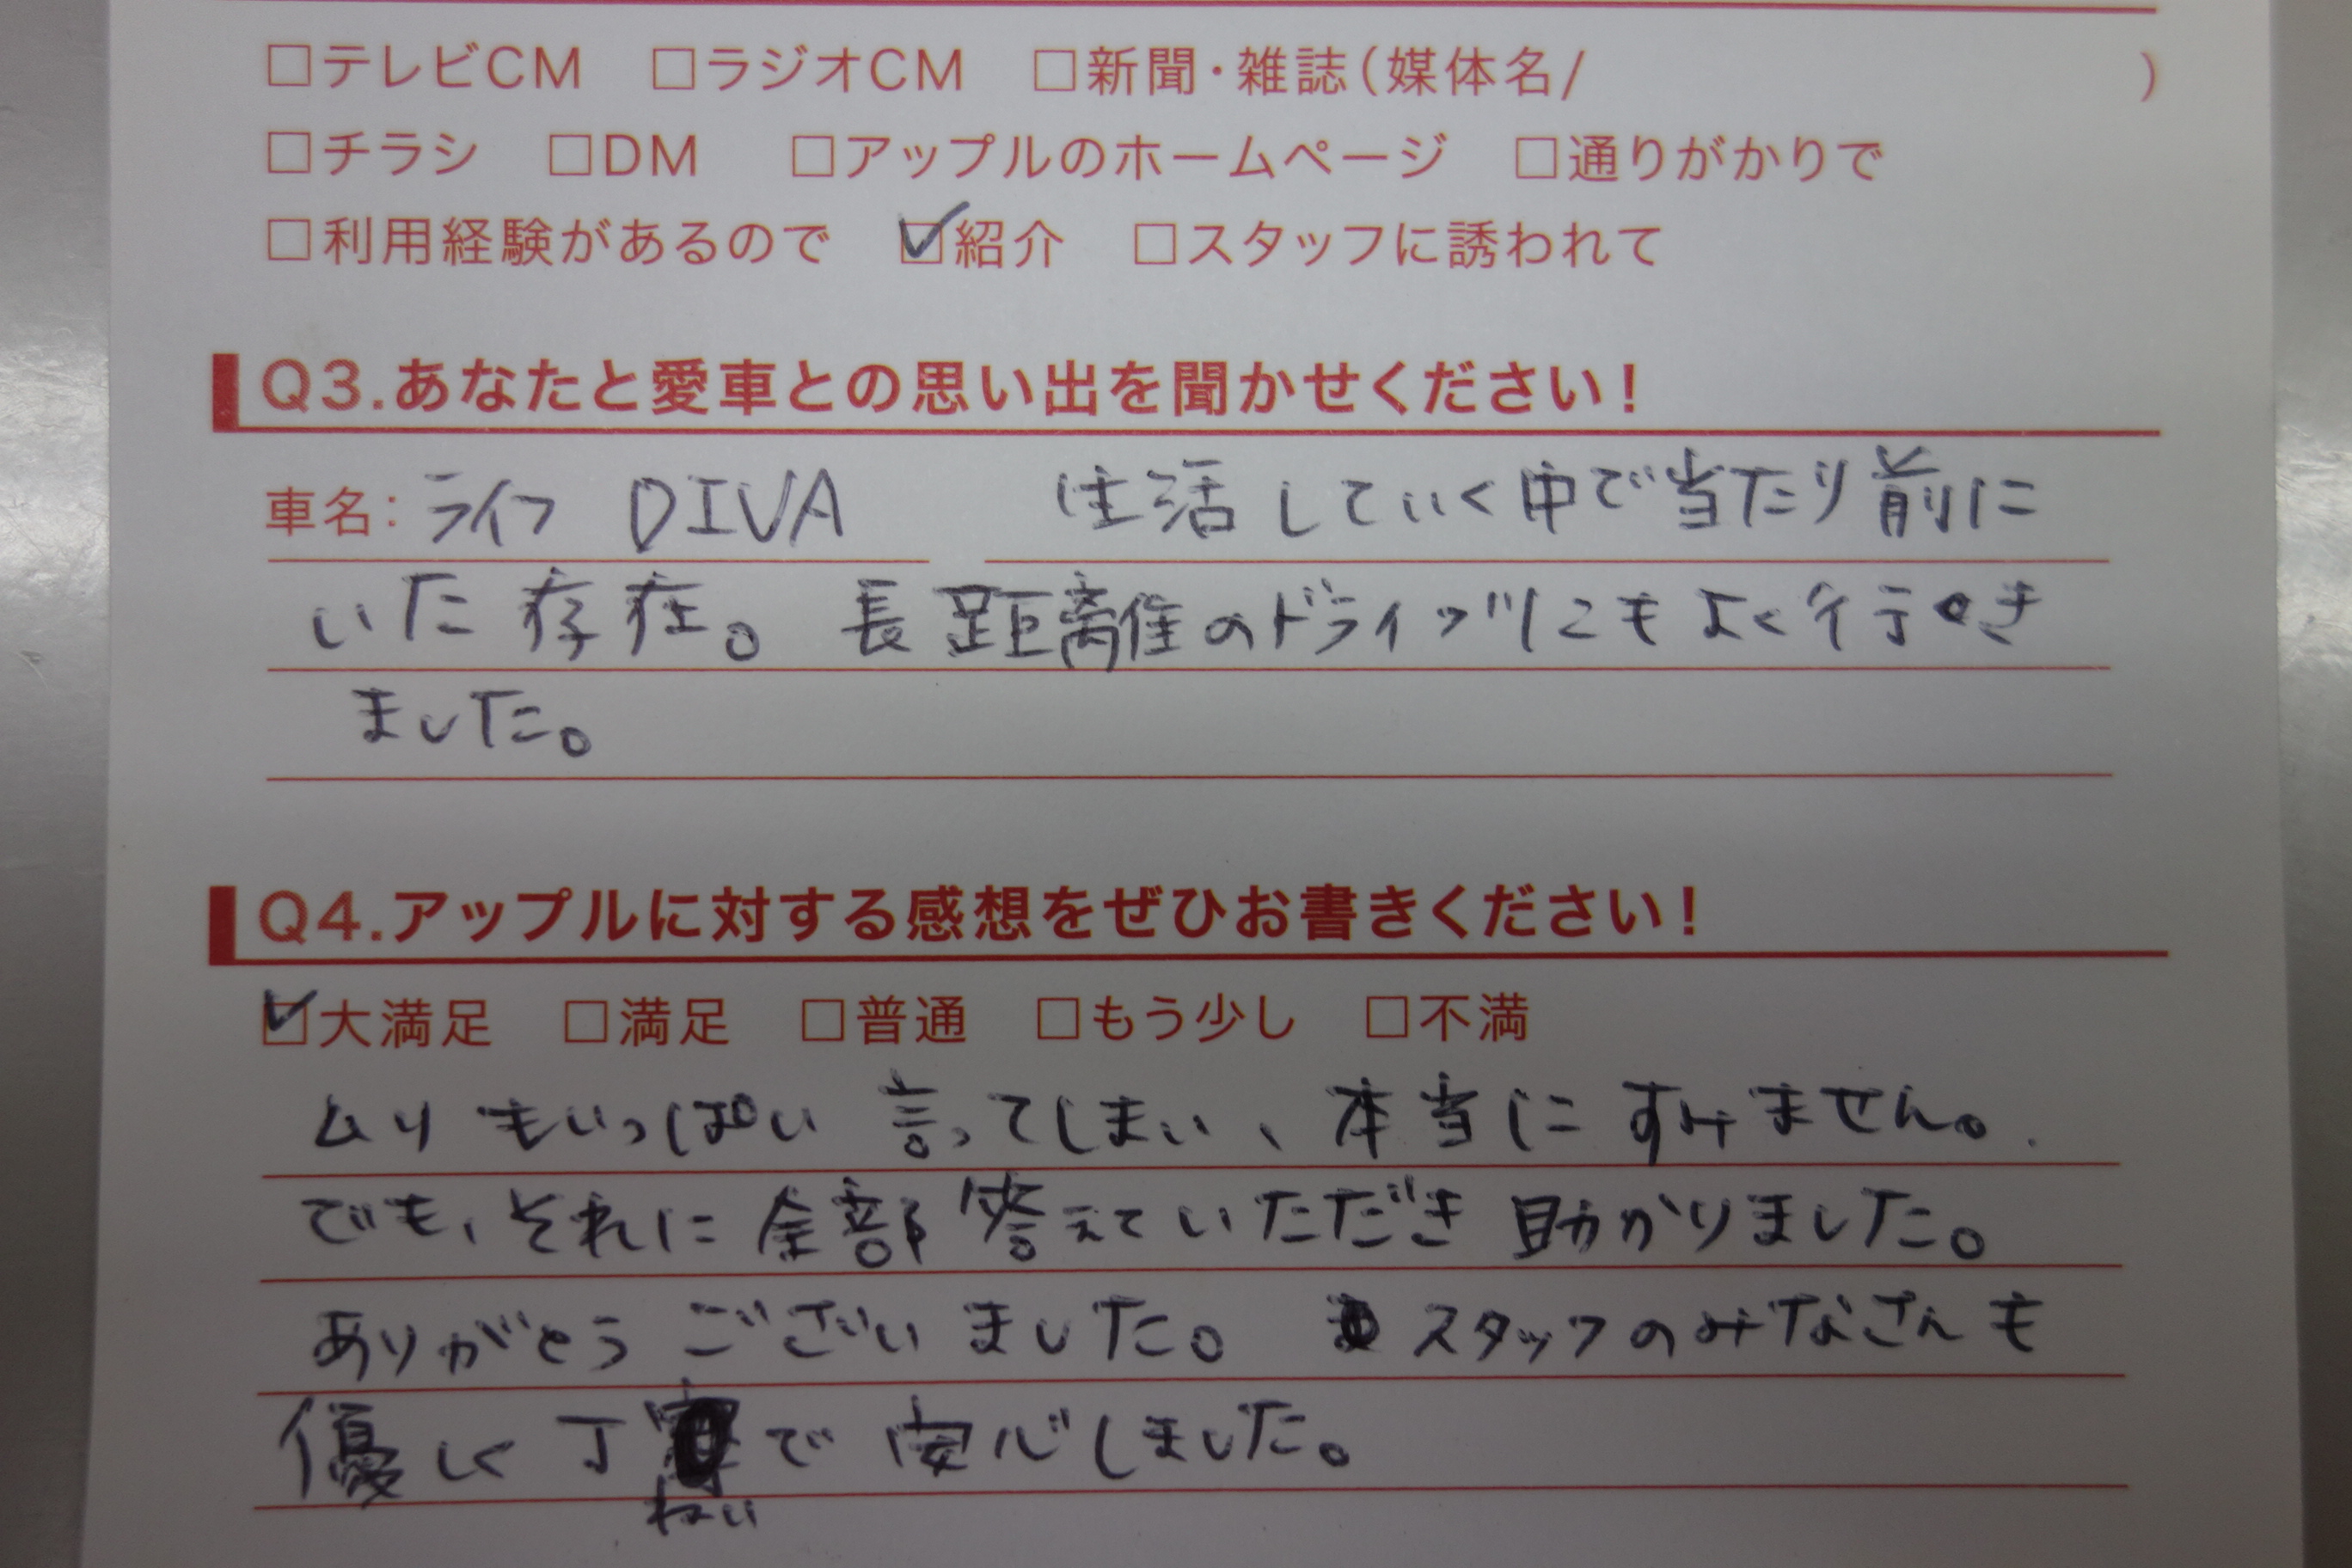 □テレビCM □ラジオCM □新聞・雑誌(媒体名/ )
□チラシ □DM □アップルのホームページ □通りがかりで
□利用経験があるので ☑紹介 □スタッフに誘われて
Q3.あなたと愛車との思い出を聞かせください!
車名: ライフ DIVA 生活していく中で当たり前に
いた存在。長距離のドライヴにもよく行き
ました。
Q4.アップルに対する感想をぜひお書きください!
☑大満足 □満足 □普通 □もう少し □不満
ムリもいっぱい言ってしまい、本当にすみません。
でも、それに全部答えていただき助かりました。
ありがとうございました。 スタッフのみなさんも
優しく丁で安心しました。
ねい